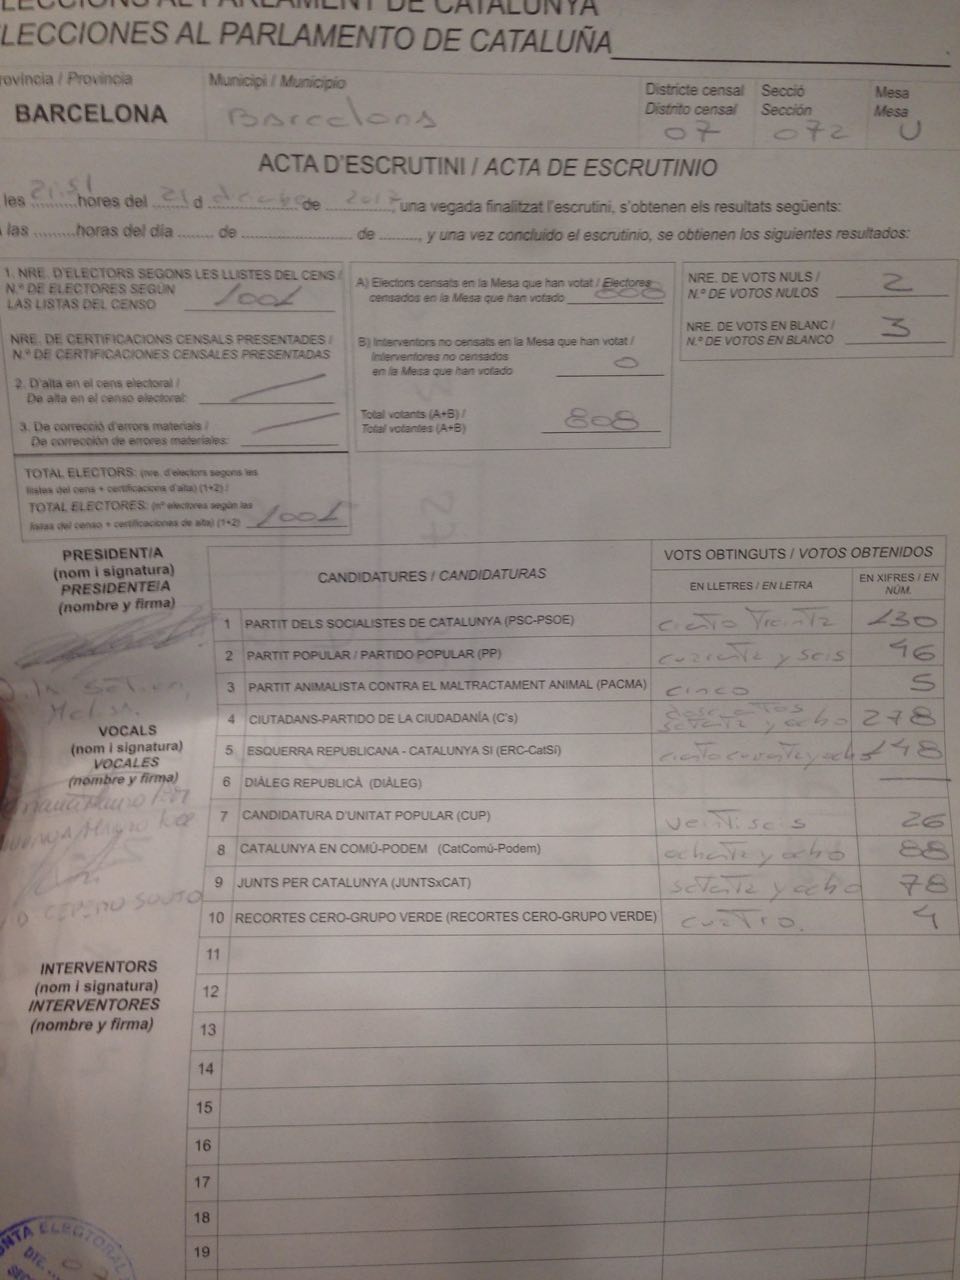 ELECCIONS AL PARLAMENT DE CATALUNYA
ELECCIONES AL PARLAMENTO DE CATALUÑA
Província / Provincia
BARCELONA
Municipi / Municipio
Barcelona
Districte censal
Distrito censal
07
Secció
Sección
072
Mesa
Mesa
U
ACTA D'ESCRUTINI / ACTA DE ESCRUTINIO
les 21:51 hores del 21 d de 2017, una vegada finalitzat l'escrutini, s'obtenen els resultats següents:
A las ........ horas del día ...... de .................... de ......., y una vez concluido el escrutinio, se obtienen los siguientes resultados:
1. NRE. D'ELECTORS SEGONS LES LLISTES DEL CENS /
N.º DE ELECTORES SEGÚN
LAS LISTAS DEL CENSO 1001
NRE. DE CERTIFICACIONS CENSALS PRESENTADES /
N.º DE CERTIFICACIONES CENSALES PRESENTADAS
2. D'alta en el cens electoral /
De alta en el censo electoral:
3. De correcció d'errors materials /
De corrección de errores materiales:
TOTAL ELECTORS: (nre. d'electors segons les
llistes del cens + certificacions d'alta) (1+2) /
TOTAL ELECTORES: (nº electores según las
listas del censo + certificaciones de alta) (1+2) 1001
A) Electors censats en la Mesa que han votat / Electores
censados en la Mesa que han votado 808
B) Interventors no censats en la Mesa que han votat /
Interventores no censados
en la Mesa que han votado 0
Total votants (A+B) /
Total votantes (A+B) 808
NRE. DE VOTS NULS /
N.º DE VOTOS NULOS 2
NRE. DE VOTS EN BLANC /
N.º DE VOTOS EN BLANCO 3
PRESIDENT/A
(nom i signatura)
PRESIDENTE/A
(nombre y firma)
VOCALS
(nom i signatura)
VOCALES
(nombre y firma)
INTERVENTORS
(nom i signatura)
INTERVENTORES
(nombre y firma)
CANDIDATURES / CANDIDATURAS
VOTS OBTINGUTS / VOTOS OBTENIDOS
EN LLETRES / EN LETRA
EN XIFRES / EN NÚM.
1 PARTIT DELS SOCIALISTES DE CATALUNYA (PSC-PSOE) ciento treinta 130
2 PARTIT POPULAR / PARTIDO POPULAR (PP) cuarenta y seis 46
3 PARTIT ANIMALISTA CONTRA EL MALTRACTAMENT ANIMAL (PACMA) cinco 5
4 CIUTADANS-PARTIDO DE LA CIUDADANÍA (C's) doscientos setenta y ocho 278
5 ESQUERRA REPUBLICANA - CATALUNYA SI (ERC-CatSí) ciento cuarenta y ocho 148
6 DIÀLEG REPUBLICÀ (DIÀLEG)
7 CANDIDATURA D'UNITAT POPULAR (CUP) veintiseis 26
8 CATALUNYA EN COMÚ-PODEM (CatComú-Podem) ochenta y ocho 88
9 JUNTS PER CATALUNYA (JUNTSxCAT) setenta y ocho 78
10 RECORTES CERO-GRUPO VERDE (RECORTES CERO-GRUPO VERDE) cuatro. 4
11
12
13
14
15
16
17
18
19
JUNTA ELECTORAL